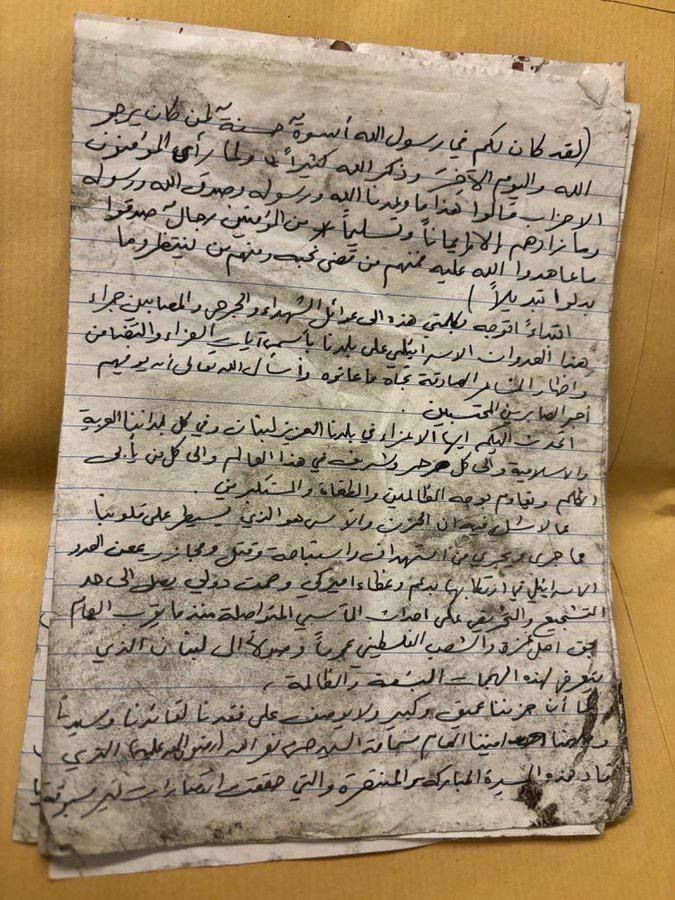 (لقد كان لكم في رسول الله أسوةٌ حسنةٌ لمن كان يرجو
الله واليوم الآخرَ وذكر الله كثيراً * ولما رأى المؤمنون
الاحزاب قالوا هذا ما وعدنا الله ورسوله وصدق الله ورسوله
وما زادهم إلا إيماناً وتسليماً * من المؤمنين رجالٌ صدقوا
ما عاهدوا الله عليه فمنهم من قضى نحبه ومنهم من ينتظر وما
بدلوا تبديلاً)
ابتداءً اتوجه بكلمتي هذه الى عوائل الشهداء والجرحى والمصابين جراء
هذا العدوان الاسرائيلي على بلدنا بأسمى آيات العزاء والتضامن
واظهار المشاعر الصادقة تجاه ما عانوه وأسأل الله تعالى أن يوفيهم
أجر الصابرين المحتسبين.
اتحدث اليكم ايها الاعزاء في بلدنا العزيز لبنان وفي كل بلداننا العربية
والاسلامية والى كل حر وشريف في هذا العالم والى كل من يأبى
الظلم ويقاوم بوجه الظالمين والطغاة والمستكبرين.
مما لا شك فيه ان الحزن والأسى هو الذي يسيطر على قلوبنا
مما جرى ويجري من استهداف واستباحة وقتل ومجازر يمعن العدو
الاسرائيلي في ارتكابها بدعم وغطاء اميركي وصمت دولي يصل الى حد
التشجيع والتحريض على احداث المآسي المتواصلة منذ ما يقرب العام
بحق اهل غزة والشعب الفلسطيني عموماً وصولاً الى لبنان الذي
يتعرض لهذه الهجمات البشعة والظالمة.
كما أن حزننا عميق وكبير ولا يوصف على فقدنا لقائدنا وسيدنا
امينا العام سماحة السيد حسن نصر الله (رضوان الله عليه) الذي
قاد هذه المسيرة المباركة والمنتصرة والتي حققت انتصارات